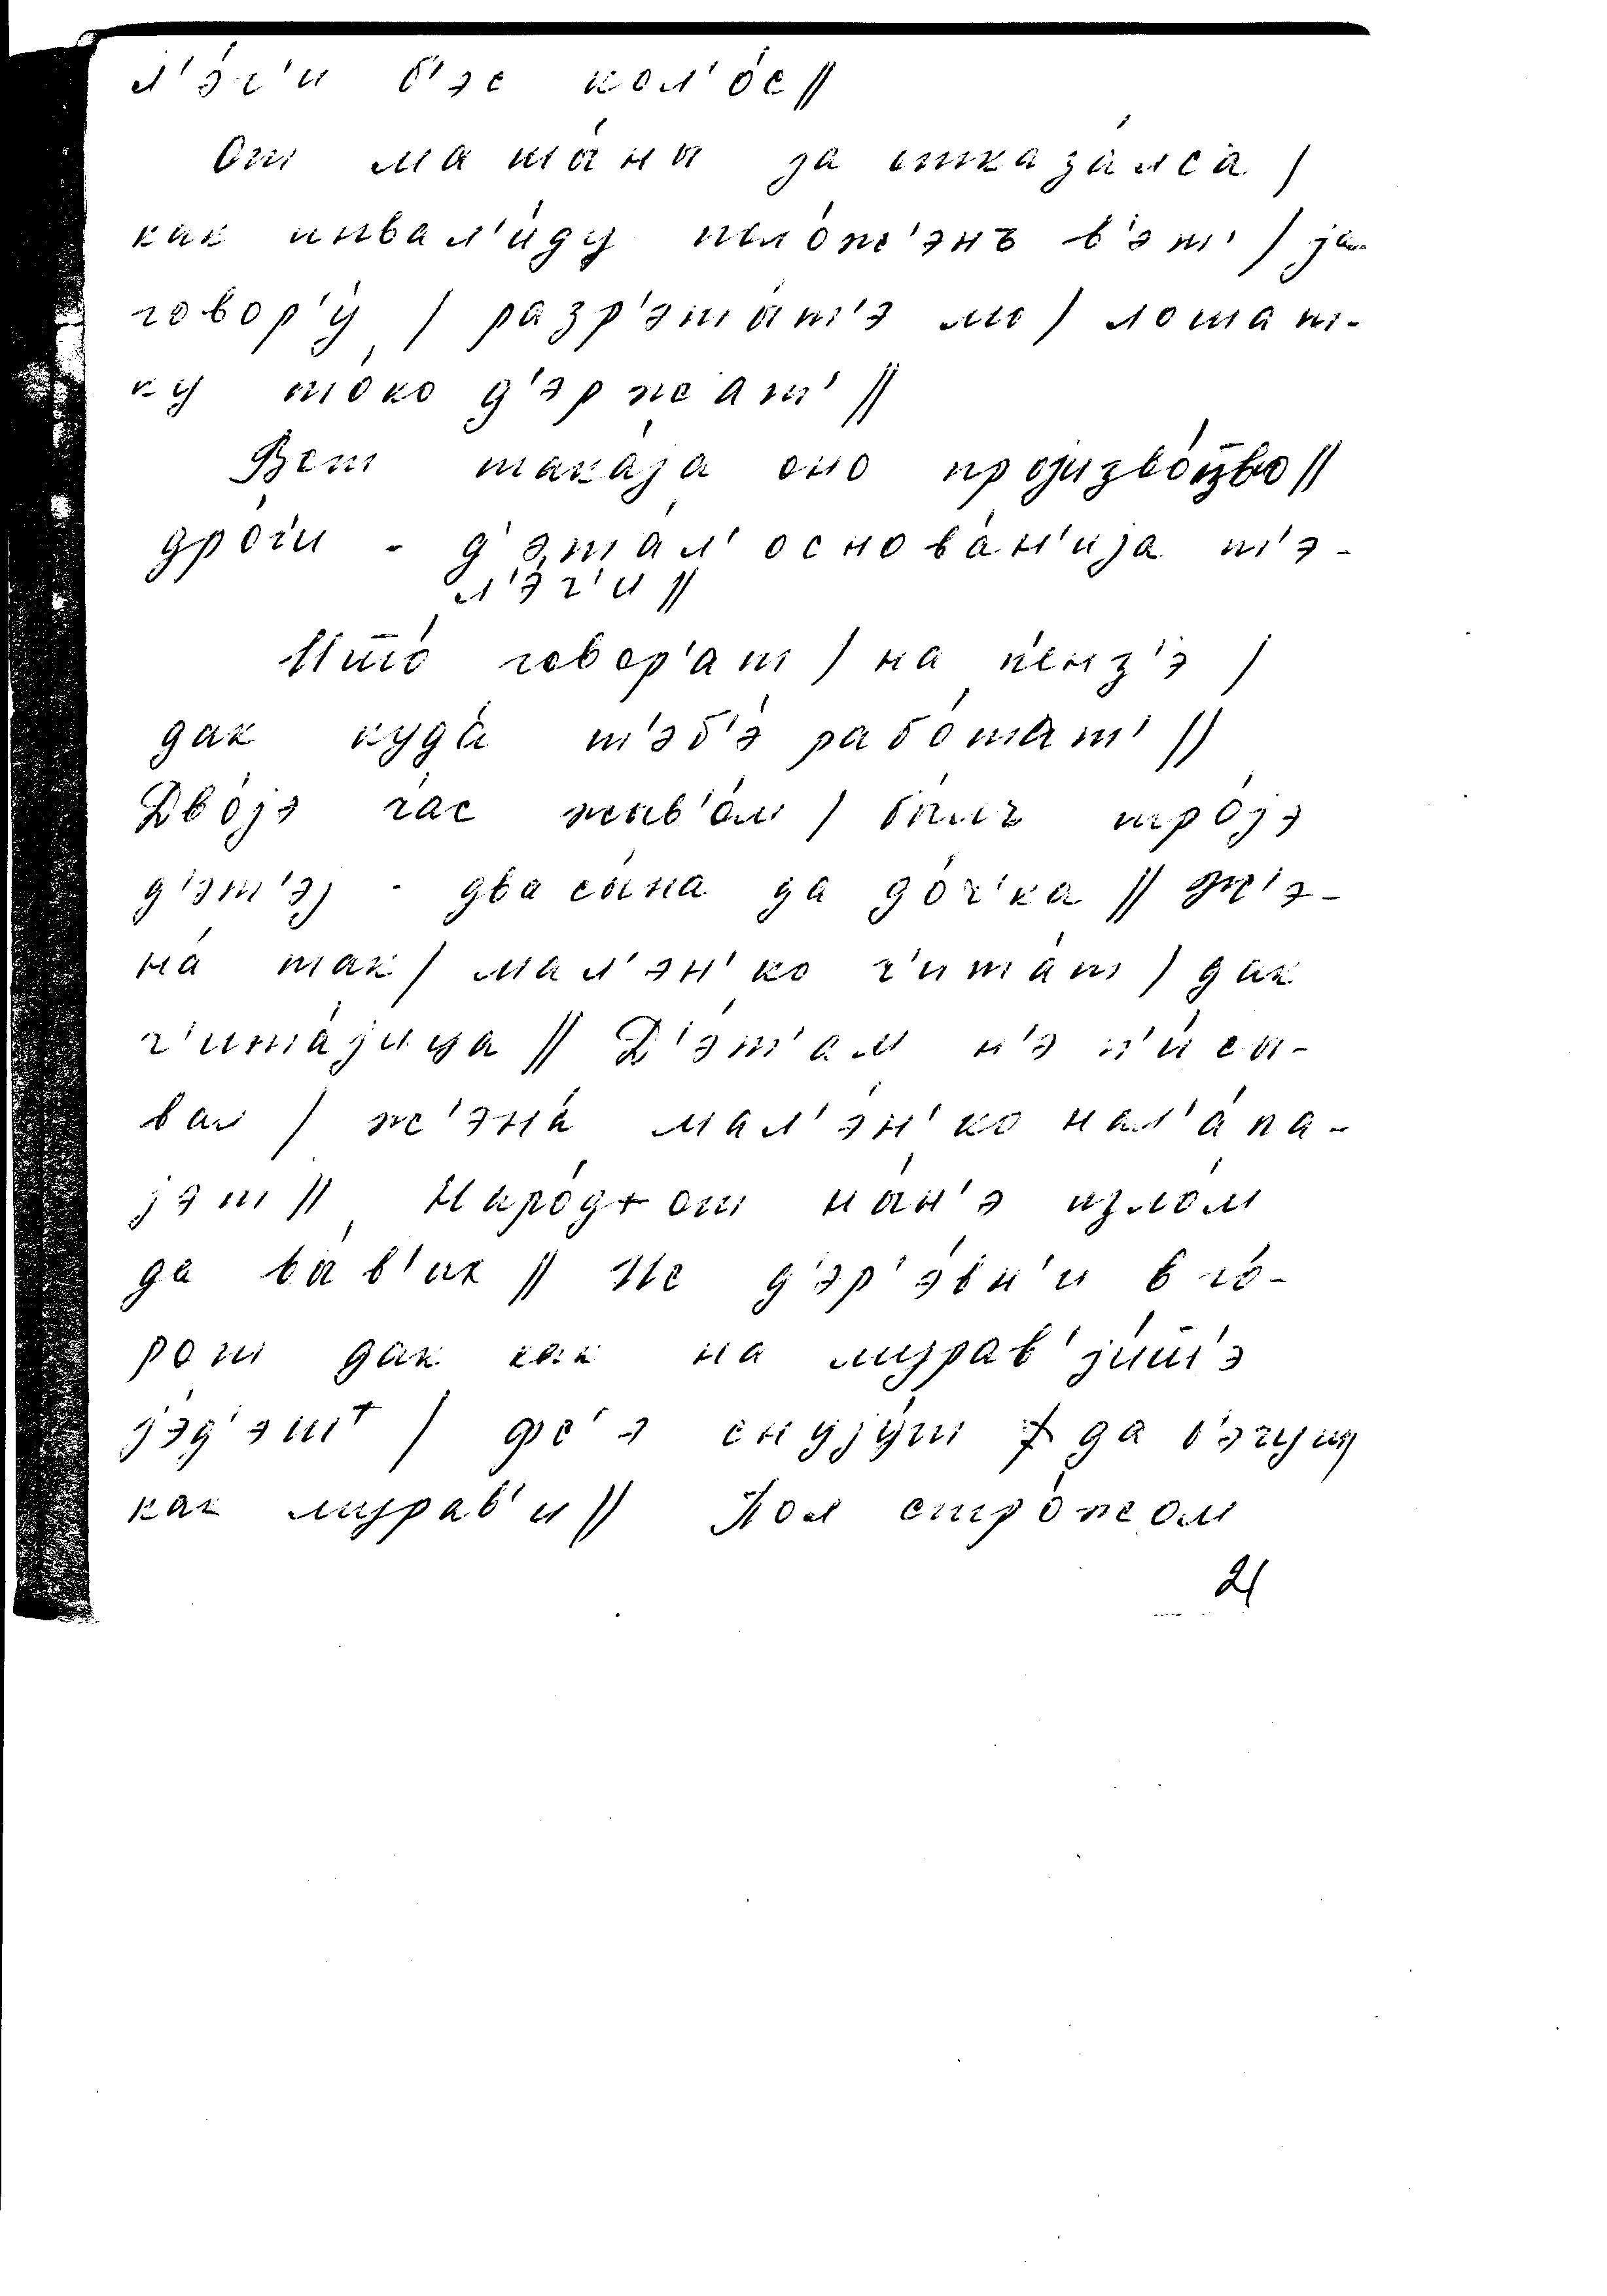 л'э́г'и б'эс кол'о́с//
От машы́ны jа отказа́лса /
как инвал'и́ду поло́ж'энъ в'эт' / jа
говор'у́ / разр'эша́т'э мо / лошат-
ку то́ко д'эржат' //
Вот така́jа оно проjизво́цтво //
дро́ги - д'эта́л' основа́н'иjа т'э-
л'эг'и //
Што́ говор'ат / на п'е́нз'э /
дак куда́ т'эб'э́ рабо́тат' //
Дво́jэ час жыв'о́м / бы́лъ тро́jэ
д'эт'э́j - два сы́на да до́ч'ка // Ж'э-
на́ так / мал'эн'ко ч'ита́т / дак
ч'ита́jица // Д'э́т'ам н'э п'и́сы-
вал / ж'эна́ мал'э́н'ко нал'а́па-
jэт // Наро́д+от ны́н'э изло́м
да вы́в'их // Ис д'эр'э́вн'и в го́-
рот дак как на мурав'jи́шш'э
jэ́д'эш+ / фс'э снуjу́т да б'эгут
как мурав'и // Пол стро́жом
21